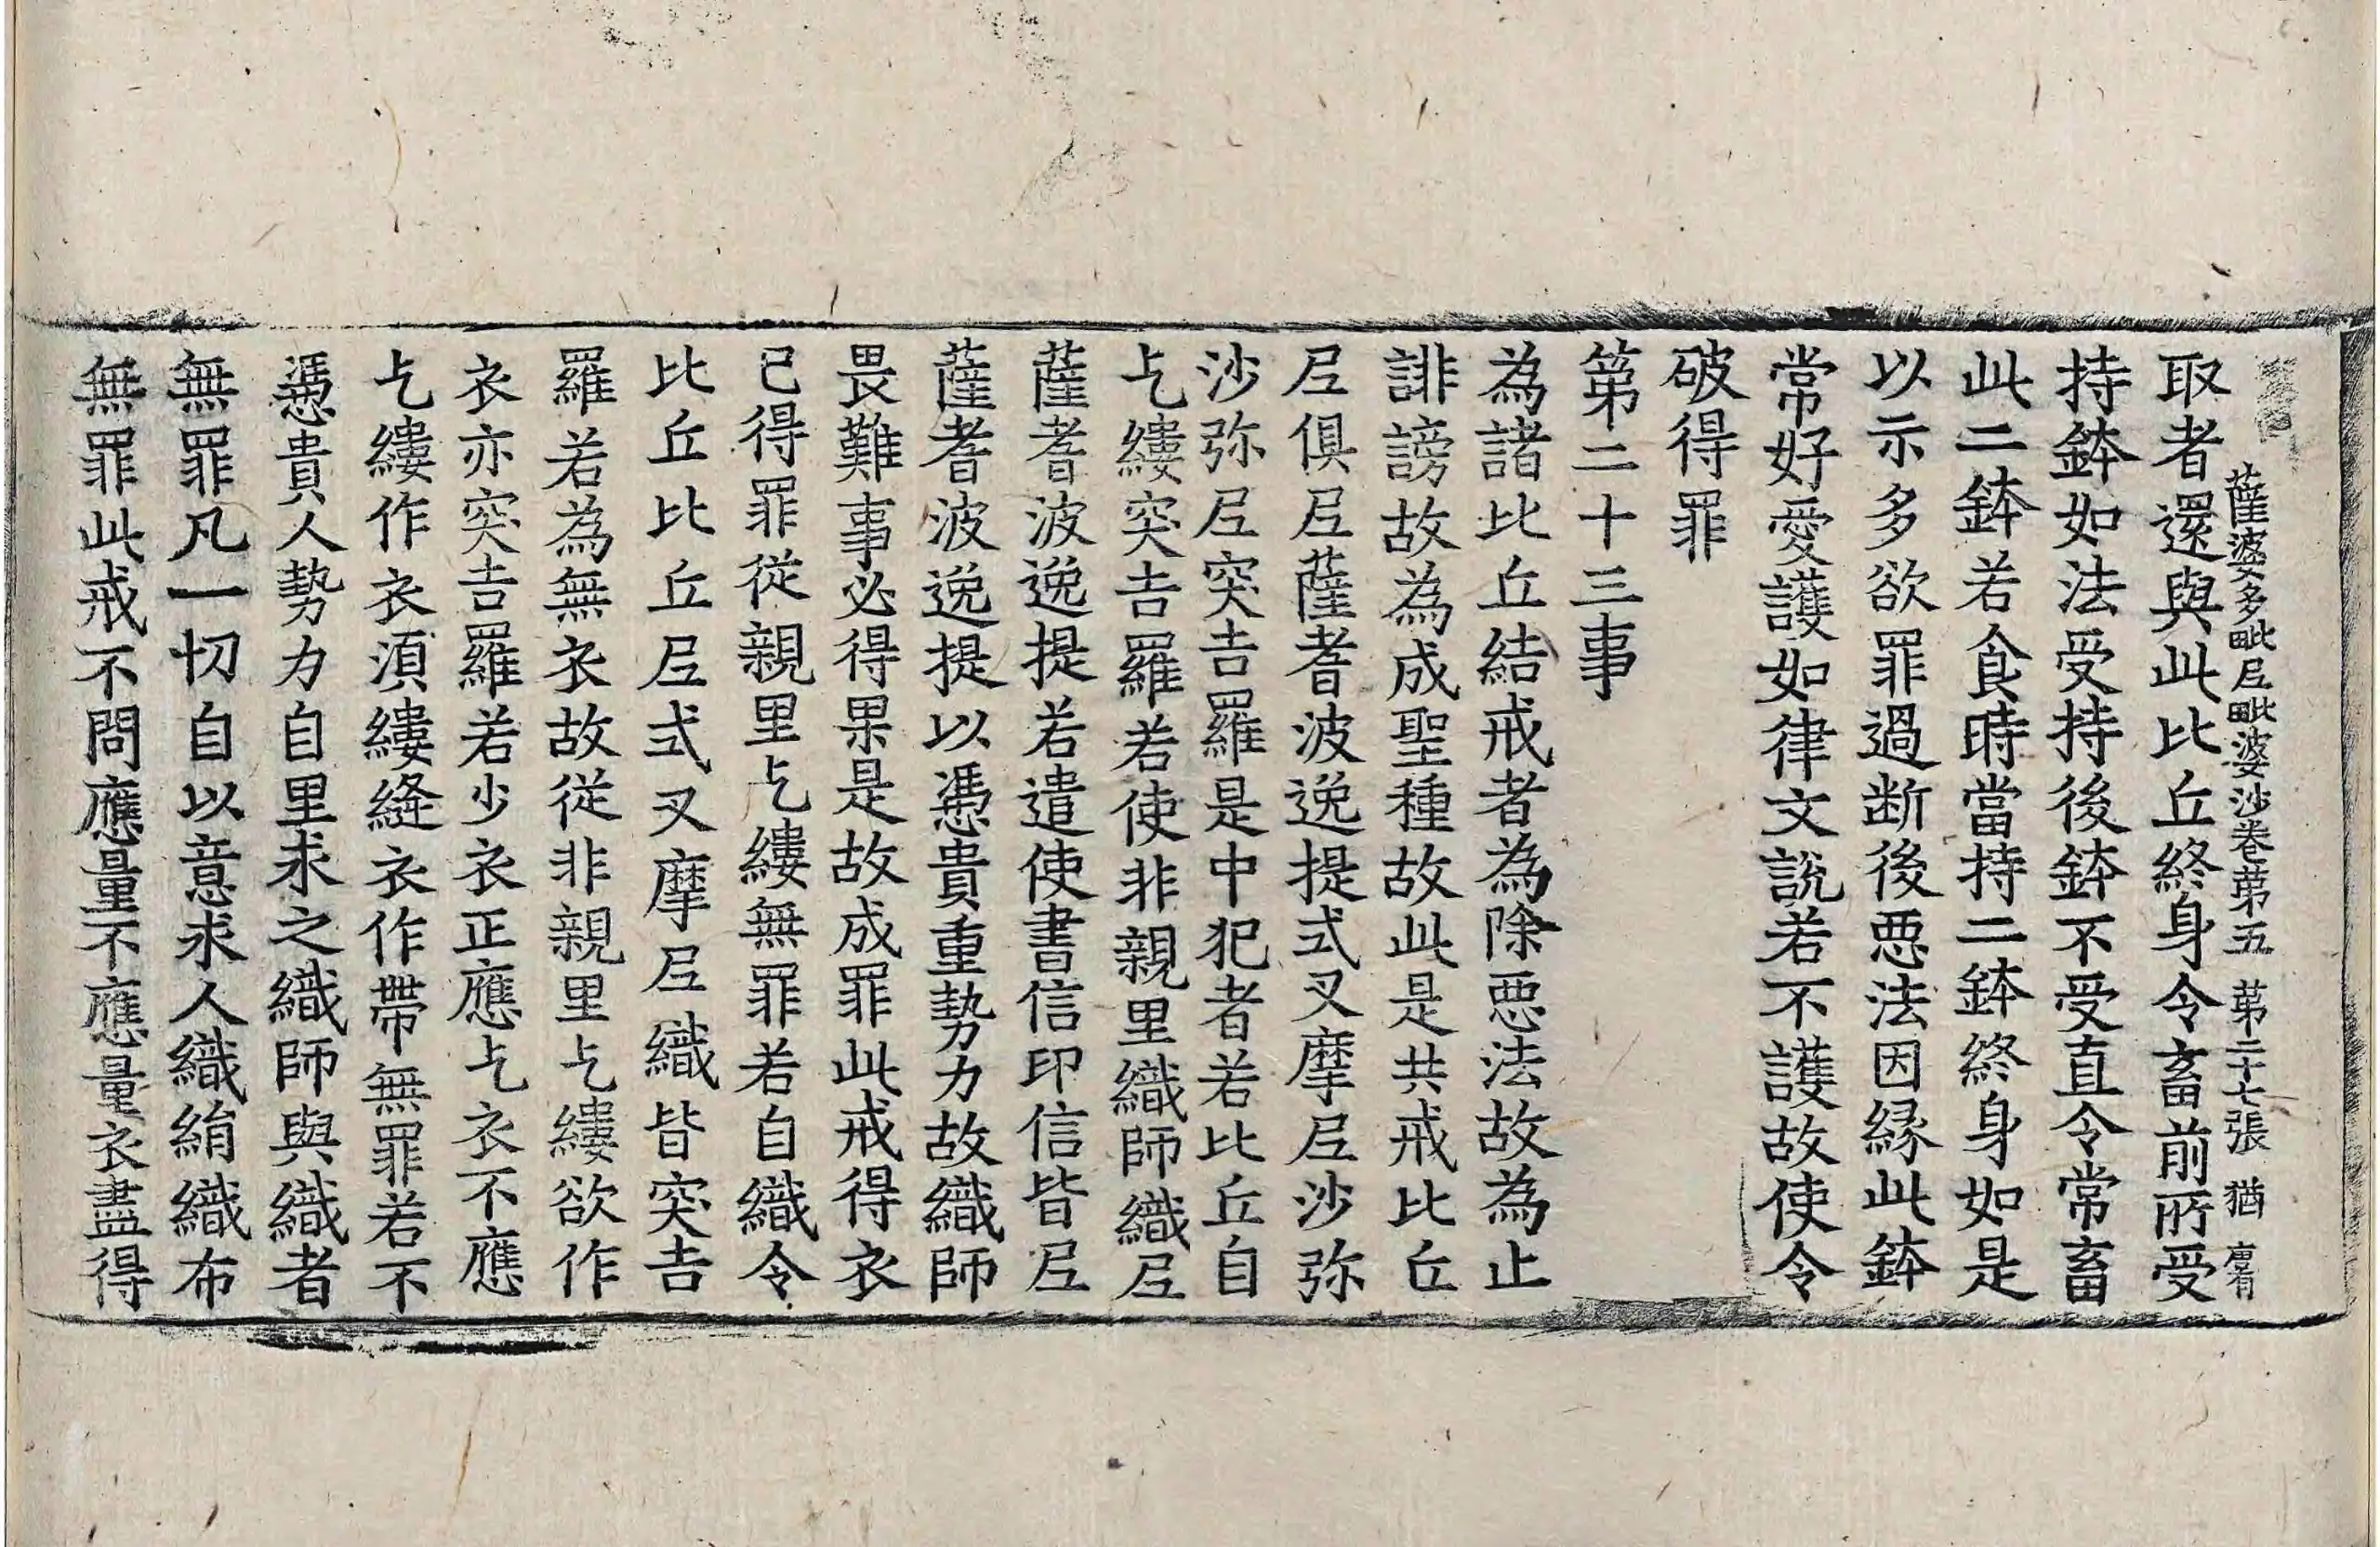 薩婆多毗尼毗婆沙卷苐五 苐二十七張 猶
取者還與此比丘終身令畜前所受
持鉢如法受持後鉢不受直令常畜
此二鉢若食時當持二鉢終身如是
以示多欲罪過断後惡法因縁此鉢
常好愛護如律文說若不護故使令
破得罪
第二十三事
為諸比丘結戒者為除惡法故為止
誹謗故為成聖種故此是共戒比丘
尼俱尼薩耆波逸提式叉摩尼沙弥
沙弥尼突吉羅是中犯者若比丘自
乞縷突吉羅若使非親里織師織尼
薩耆波逸提若遣使書信印信皆尼
薩耆波逸提以憑貴重勢力故織師
畏難事必得果是故成罪此戒得衣
已得罪從親里乞縷無罪若自織令
比丘比丘尼式叉摩尼織皆突吉
羅若為無衣故從非親里乞縷欲作
衣亦突吉羅若少衣正應乞衣不應
乞縷作衣湏縷縫衣作帶無罪若不
憑貴人勢力自里求之織師與織者
無罪凡一切自以意求人織絹織布
無罪此戒不問應量不應量衣盡得